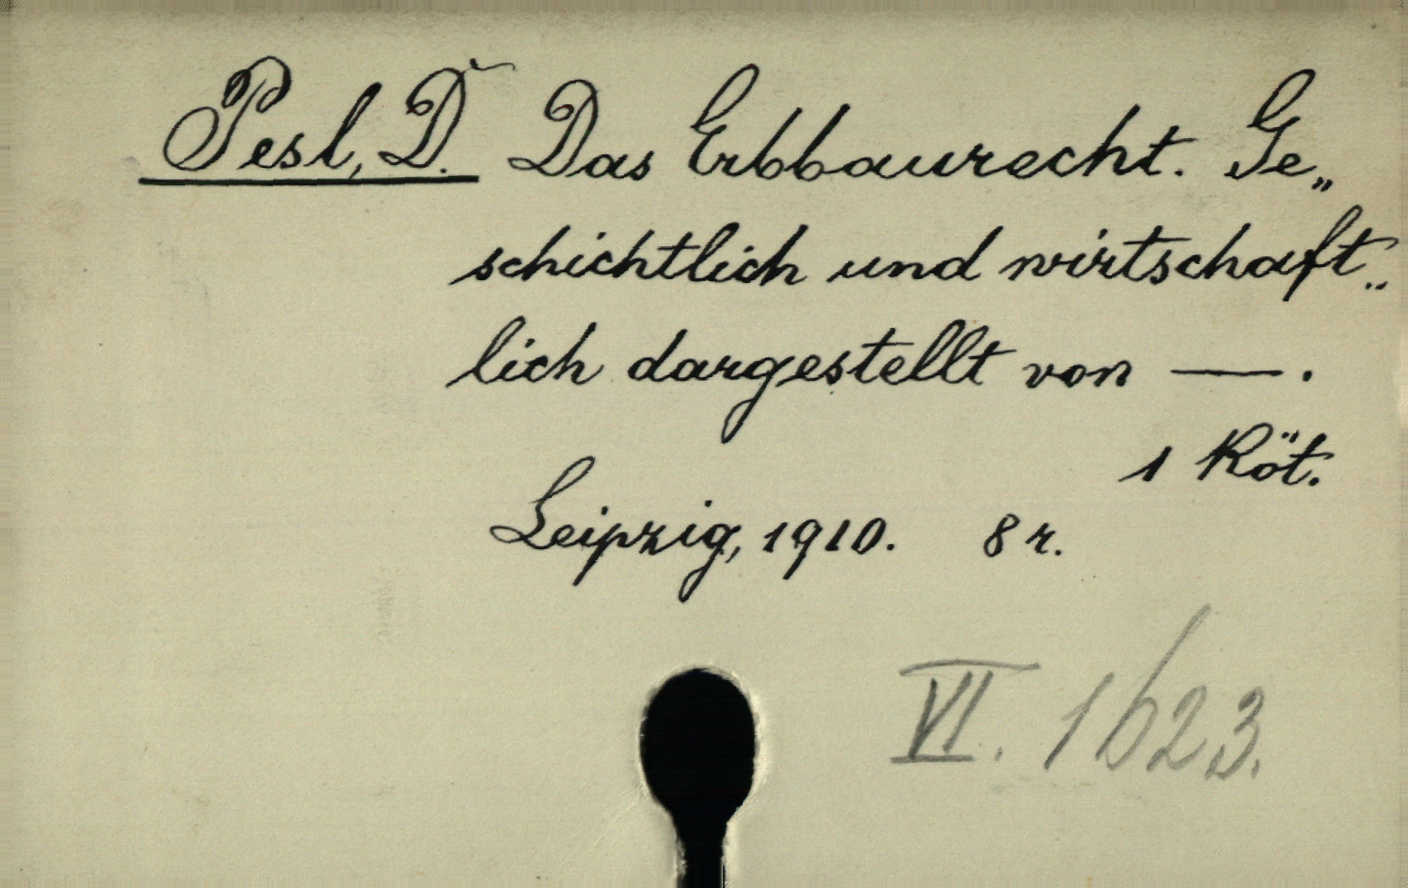 Pesl, D. Das Erbbaurecht. Ge„
schichtlich und wirtschaft„
lich dargestellt von —.
1 Köt.
Leipzig, 1910. 8 r.
VI. 1623.